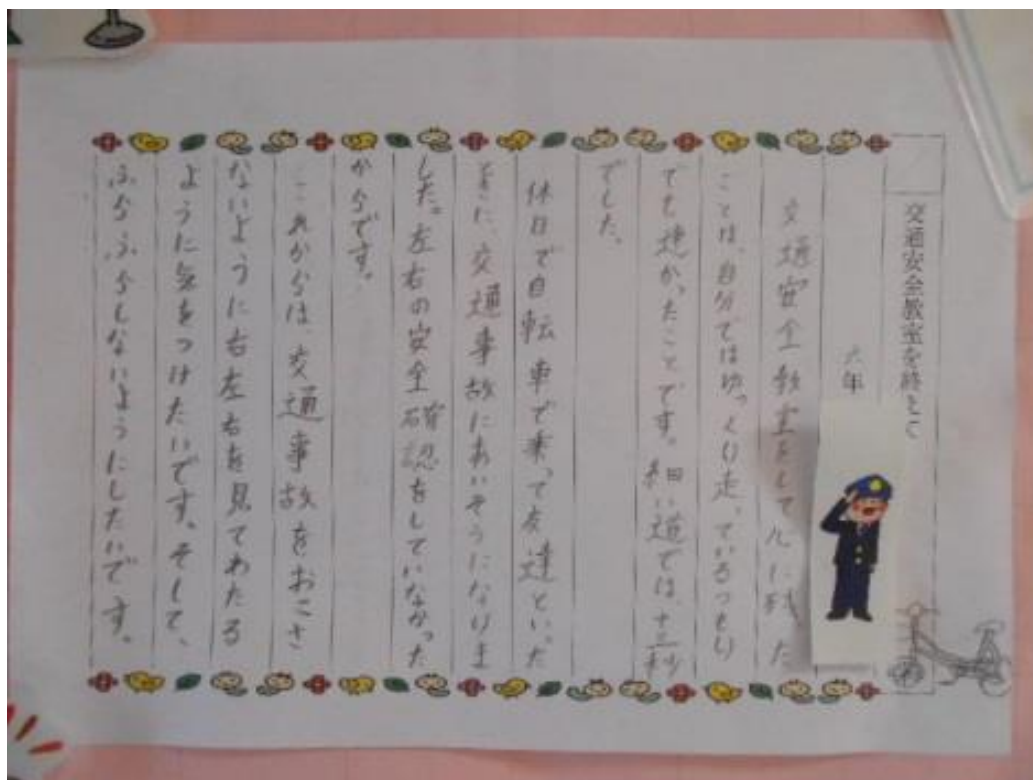 交通安全教室を終えて
六年
交通安全教室をして心に残った
ことは、自分ではゆっくり走っているつもり
でも速かったことです。細い道では、十三秒
でした。
休日で自転車で乗って友達といった
ときに、交通事故にあいそうになりま
した。左右の安全確認をしていなかった
からです。
これからは、交通事故をおこさ
ないように右左右を見てわたる
ように気をつけたいです。そして、
ふらふらしないようにしたいです。